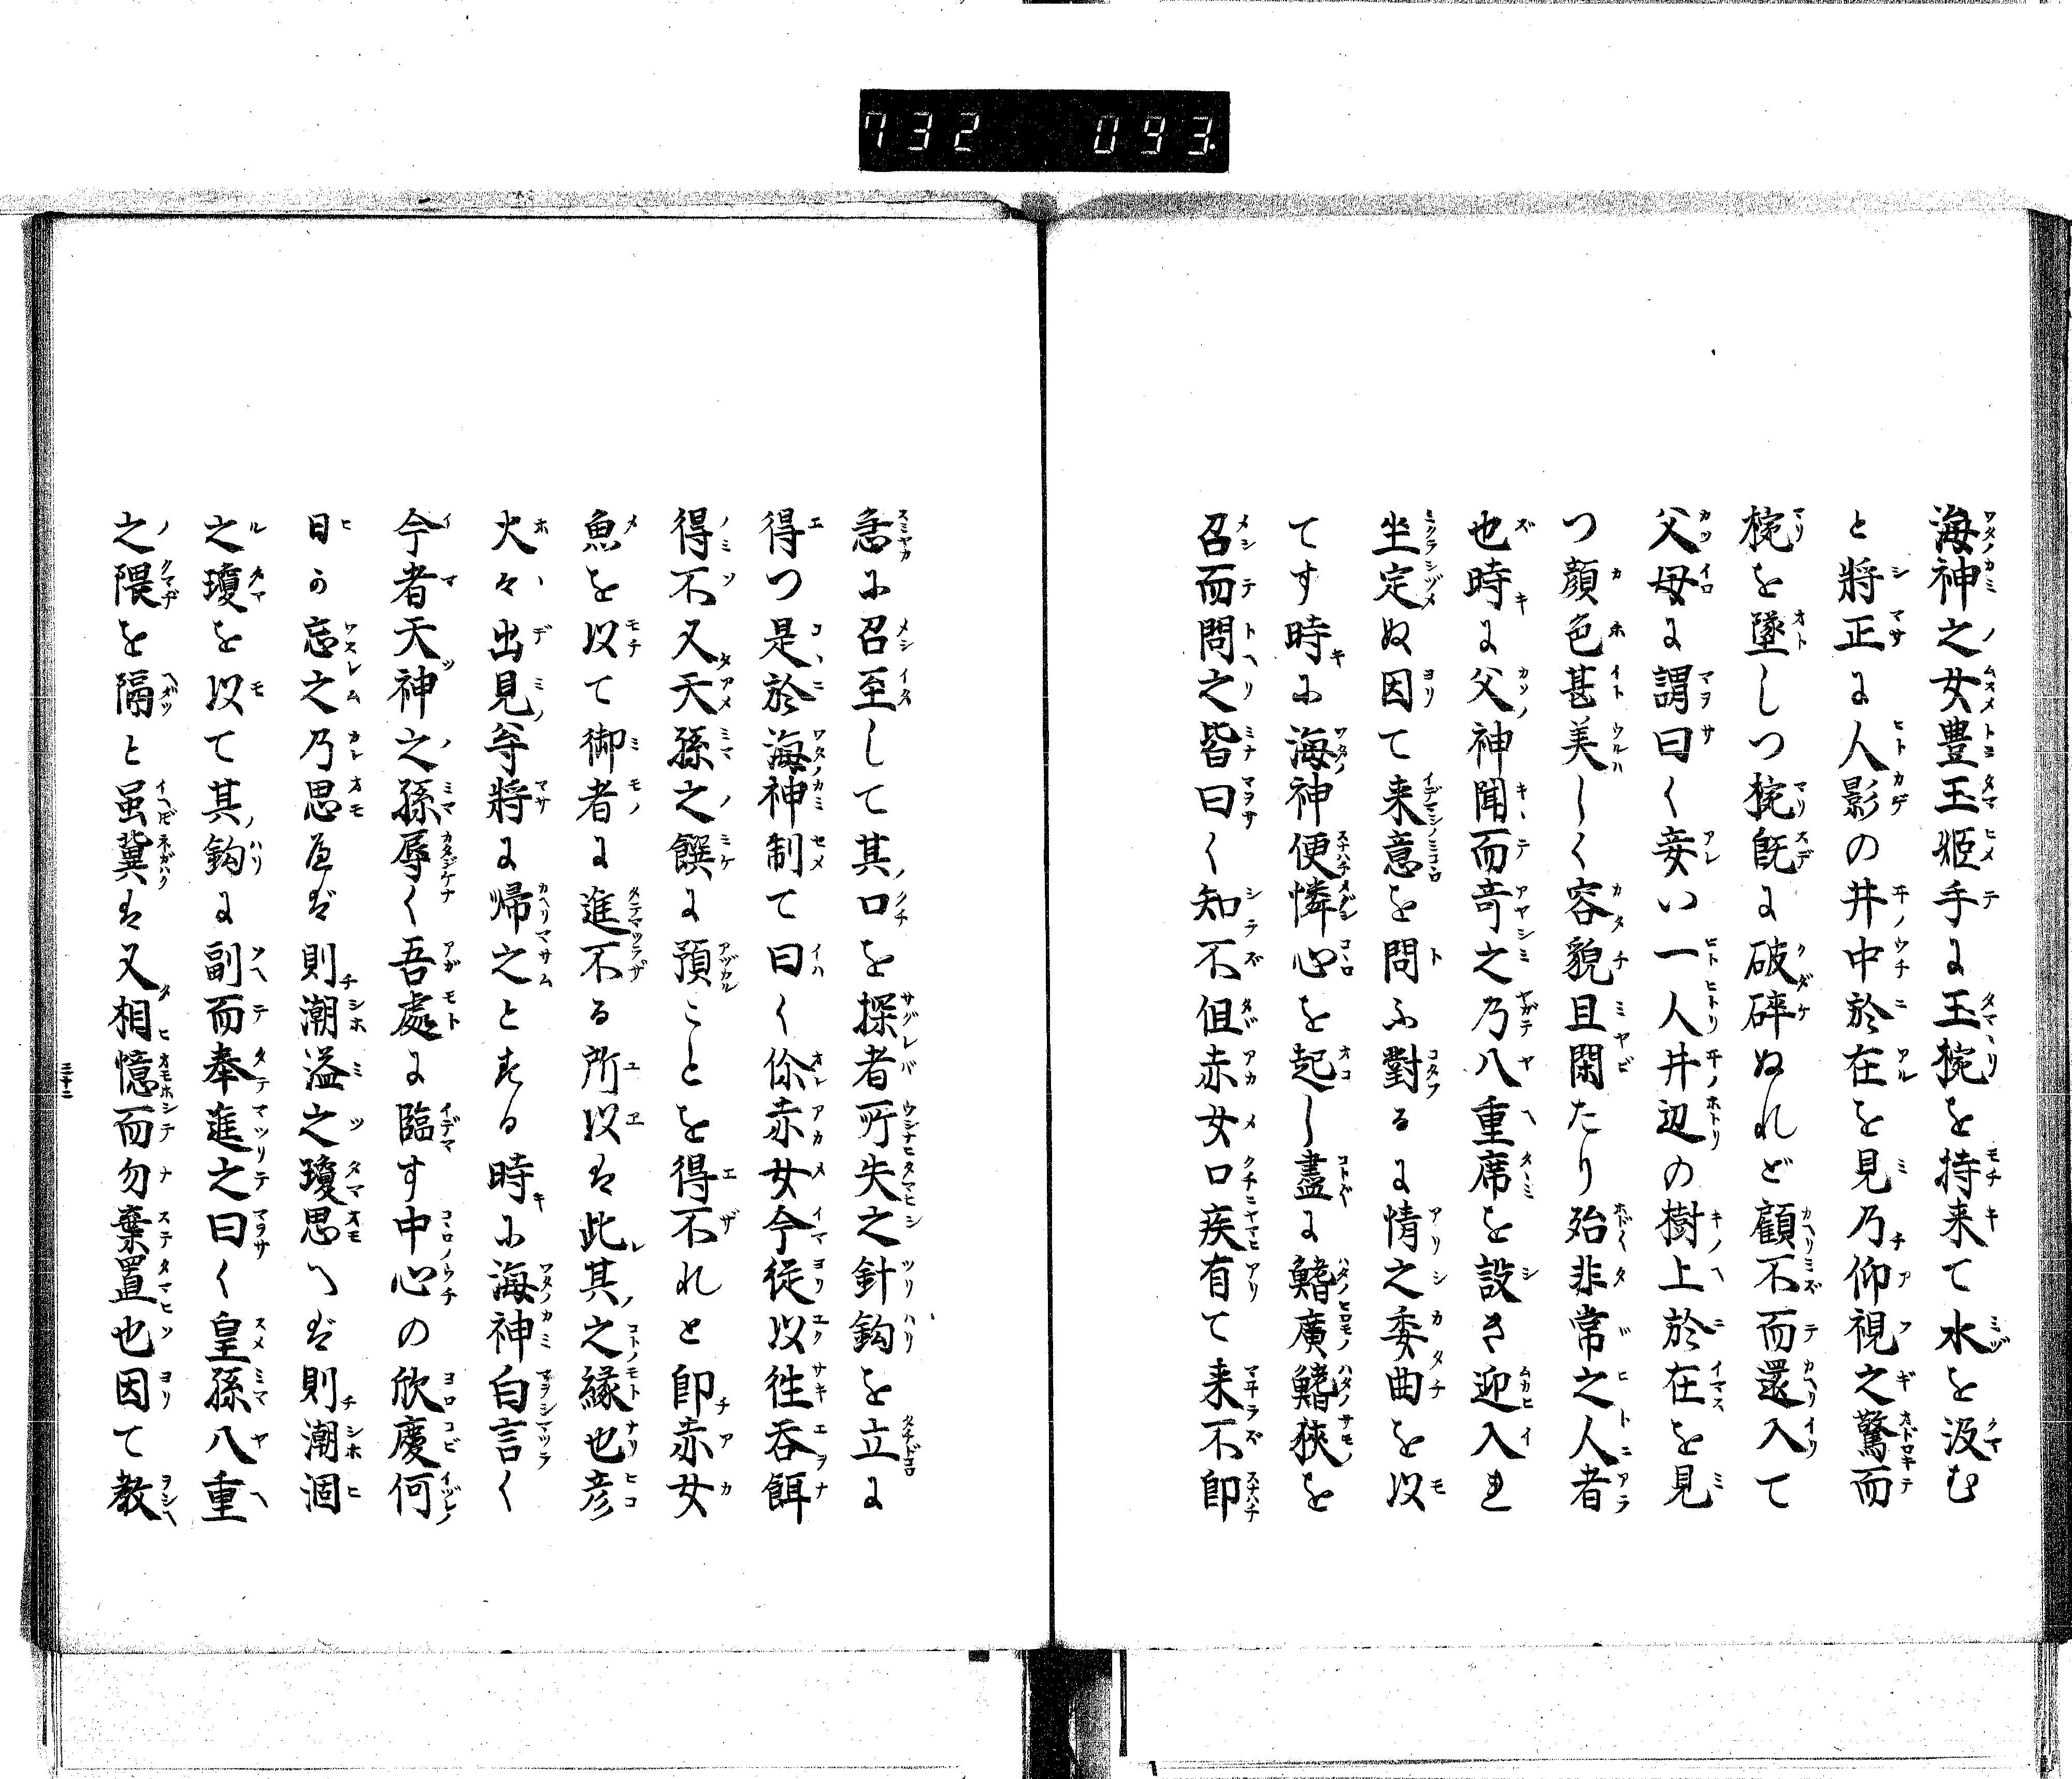 732 093.
海神之女豊玉姫手に玉椀を持来て水を汲む
と將正に人影の井中於在を見乃仰視之驚而
椀を墜しつ椀既に破砕ぬれど顧不而還入て
父母に謂曰く妾い一人井辺の樹上於在を見
つ顔色甚美しく容貌且閑たり殆非常之人者
也時に父神聞而竒之乃八重席を設き迎入れ
坐定ぬ因て来意を問ふ對るに情之委曲を以
てす時に海神便憐心を起し盡に鰭廣鰭狹を
召而問之皆曰く知不但赤女口疾有て来不即
急に召至して其口を探者所失之針鈎を立に
得つ是於海神制て曰く你赤女今従以徃呑餌
得不又天孫之饌に預ことを得不れと即赤女
魚を以て御者に進不る所以は此其之縁也彦
火々出見尊將に帰之とする時に海神白言く
今者天神之孫辱く吾處に臨す中心の欣慶何
日か忘之乃思へば則潮溢之瓊思へば則潮涸
之瓊を以て其鈎に副而奉進之曰く皇孫八重
之隈を隔と虽冀は又相憶而勿棄置也因て教
三十二